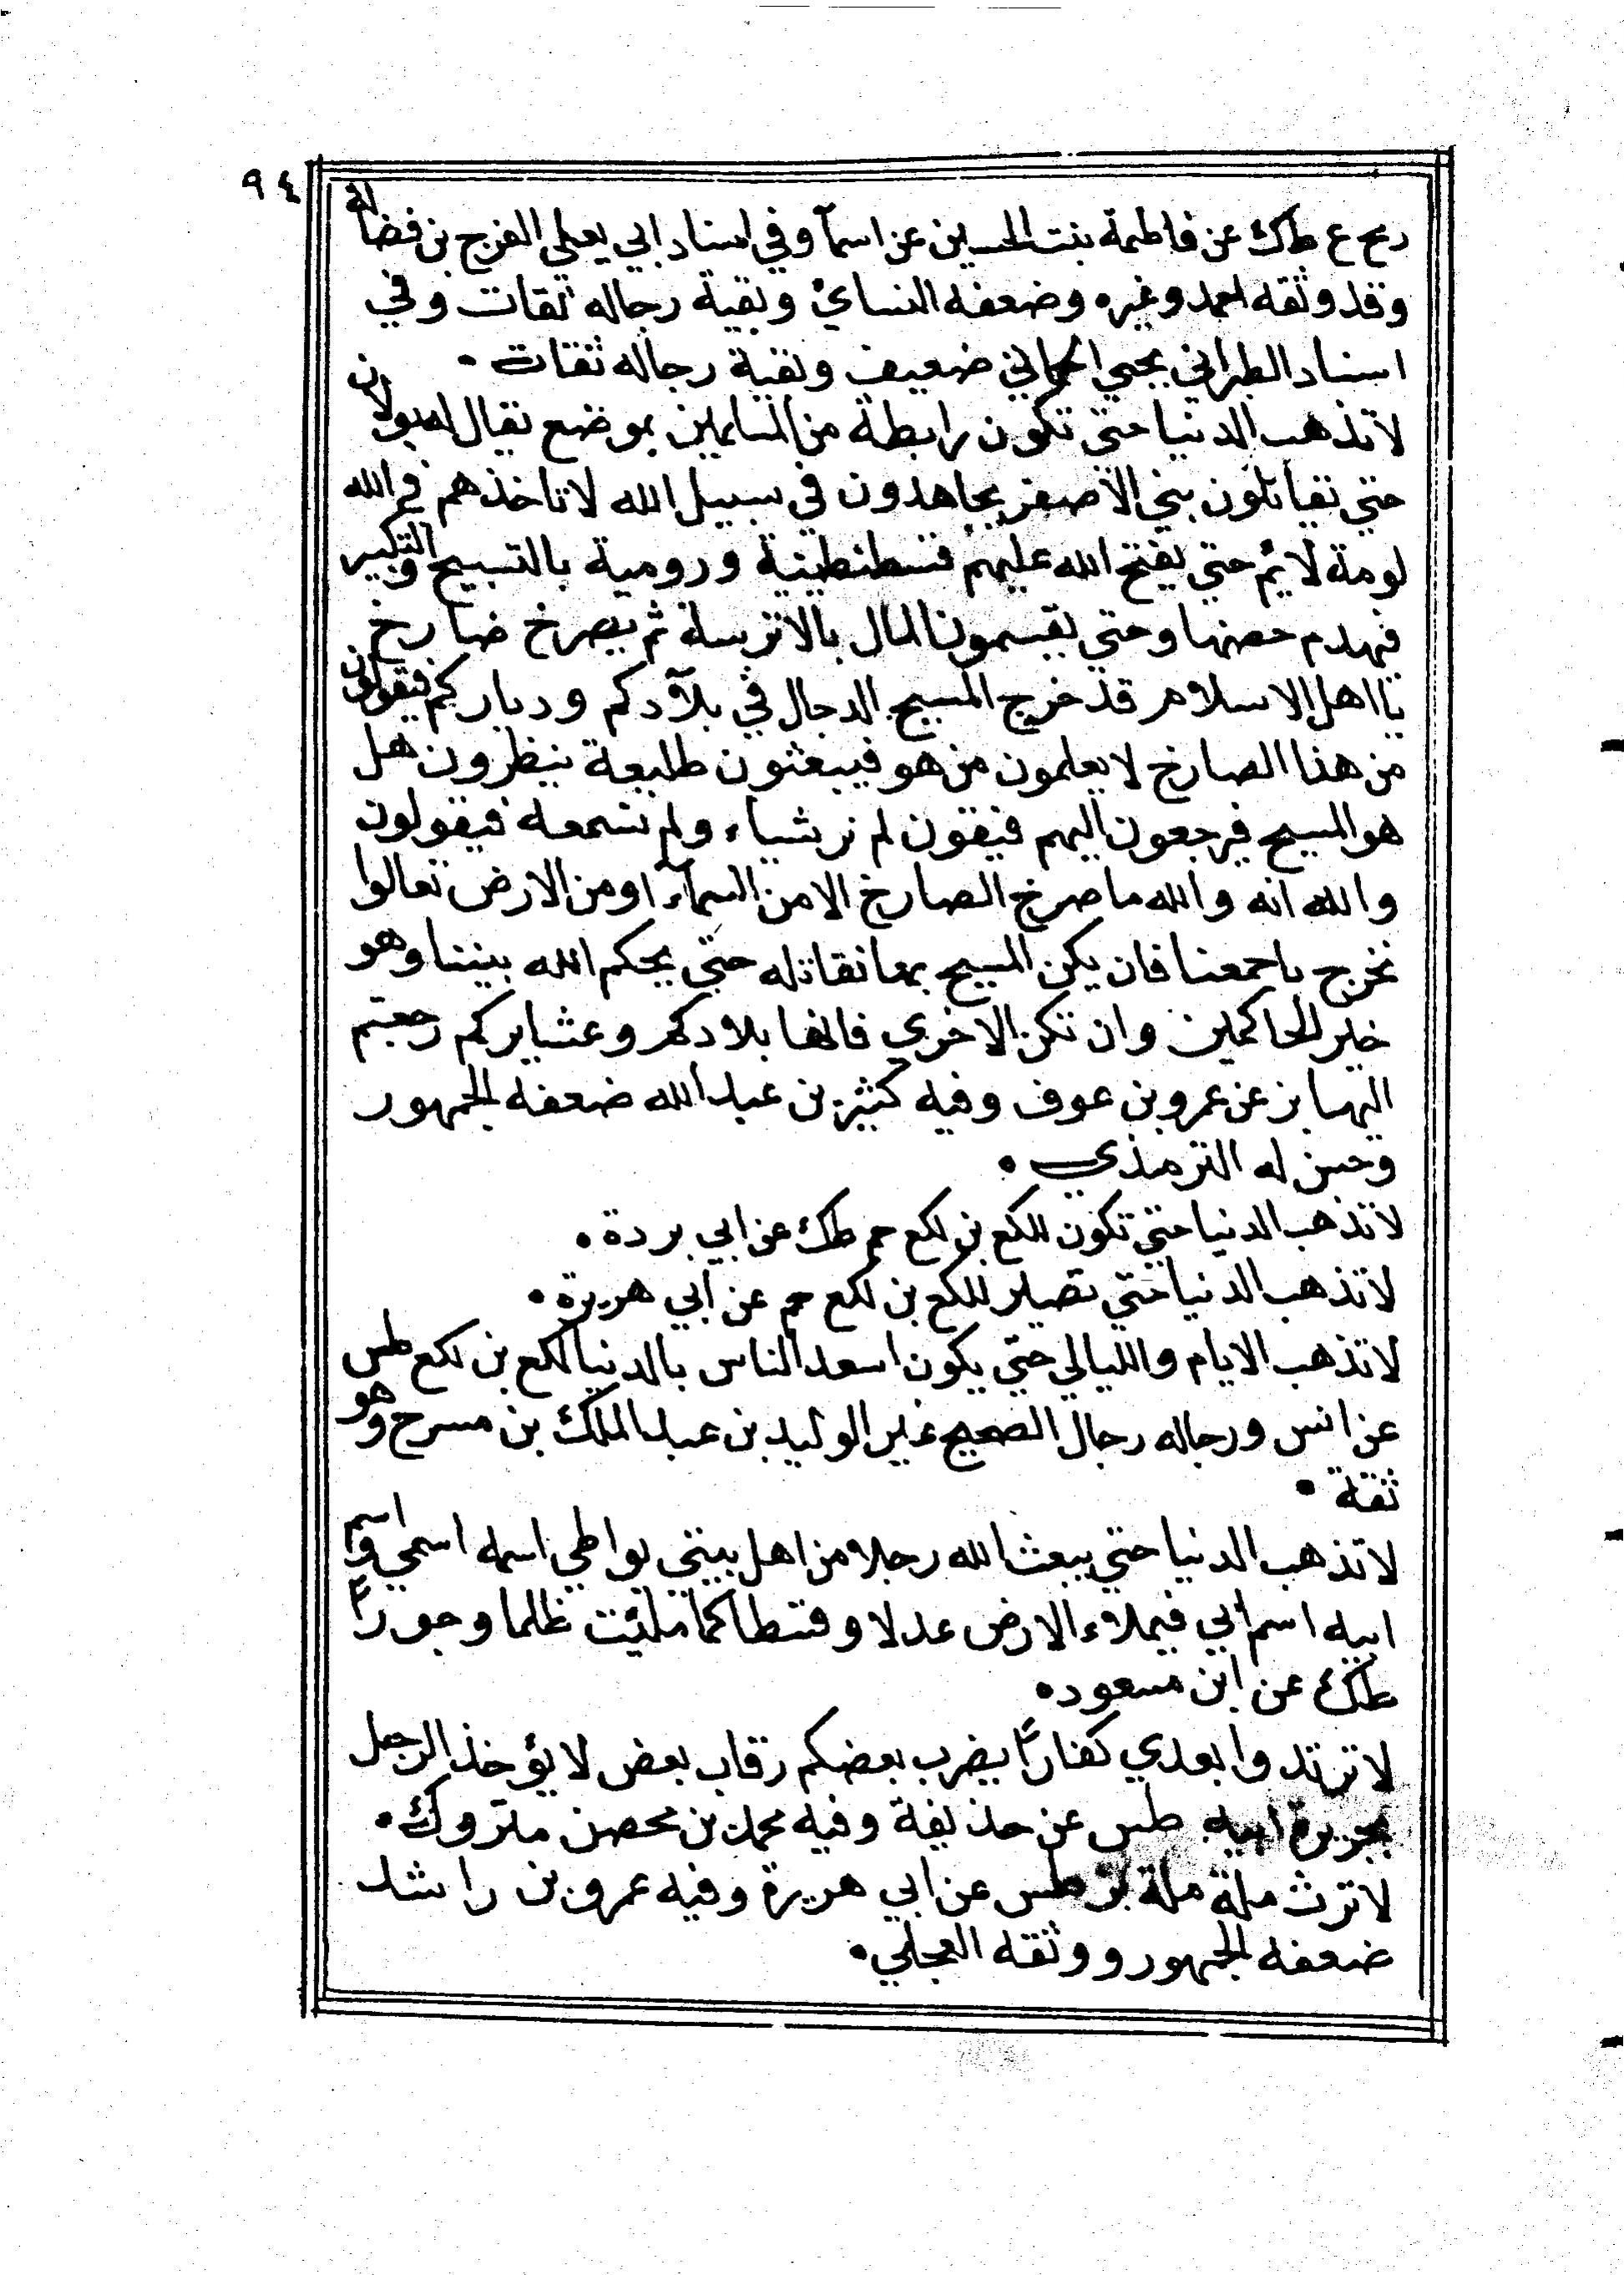 ٩٤
ريح ع طك عن فاطمة بنت الحسين عن اسمآ وفي اسناد ابي يعلى الفرج بن فضالة
وقد وثقه احمد وغيره وضعفه النسائ وبقية رجاله ثقات وفي
اسناد الطبراني يحيى الحماني ضعيف وبقية رجاله ثقات •
لا تذهب الدنيا حتى تكون رابطة من المسلمين بموضع يقال له بولان
حتي تقاتلون بني الاصفر يجاهدون في سبيل الله لا تاخذهم في الله
لومة لائم حتي يفتح الله عليهم قسطنطينية ورومية بالتسبيح والتكبير
فيهدم حصنها وحتي يقسمون المال بالاترسة ثم يصرخ صارخ
يا اهل الاسلام قد خرج المسيح الدجال في بلادكم ودياركم فيقولون
من هذا الصارخ لا يعلمون من هو فيبعثون طليعة ينظرون هل
هو المسيح فيرجعون اليهم فيقون لم نر شياء ولم نسمعه فيقولون
والله انه والله ما صرخ الصارخ الا من السمآء او من الارض تعالوا
نخرج باجمعنا فان يكن المسيح بها نقاتله حتي يحكم الله بيننا وهو
خير الحاكمين وان تكن الاخري فانها بلادكم وعشايركم رجعتم
اليها بز عن عمرو بن عوف وفيه كثير بن عبد الله ضعفه الجمهور
وحسن له الترمذي •
لا تذهب الدنيا حتي تكون للكع بن لكع حم طك عن ابي بردة •
لا تذهب الدنيا حتي تصير للكع بن لكع حم عن ابي هريرة •
لا تذهب الايام والليالي حتي يكون اسعد الناس بالدنيا لكع بن لكع طس
عن انس ورجاله رجال الصحيح غير الوليد بن عبد الملك بن مسرح وهو
ثقة •
لا تذهب الدنيا حتي يبعث الله رجلا من اهل بيتي يواطي اسمه اسمي واسم
ابيه اسم ابي فيملاء الارض عدلا وقسطا كما ملئت ظلما وجوراً
طك عن ابن مسعود •
لا ترتدوا بعدي كفاراً يضرب بعضكم رقاب بعض لا يؤخذ الرجل
بجريرة ابيه طس عن حذيفة وفيه محمد بن محصن متروك •
لا ترث ملة ملة بز طس عن ابي هريرة وفيه عمرو بن راشد
ضعفه الجمهور ووثقه العجلي •